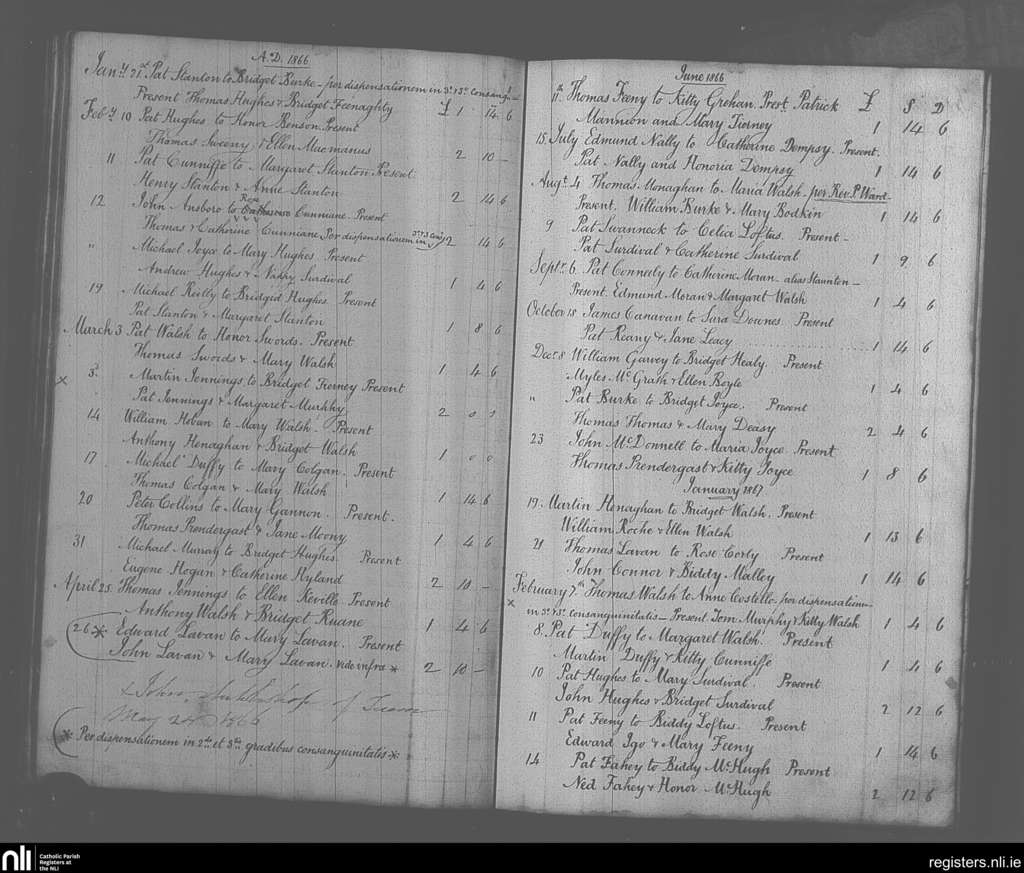 A.D. 1866
Jany. 21st. Pat Stanton to Bridget Burke - per dispensationem in 3° & 3° consang.
Present Thomas Hughes & Bridget Feenaghty £ 1 " 14 " 6
Feby. 10 Pat Hughes to Honor Benson. Present
Thomas Sweeny & Ellen Macmanus 2 10 -
11 Pat Cunniffe to Margaret Stanton Present
Henry Stanton & Anne Stanton 2 14 6
12 John Ansboro to Cunniane. Present
Thomas & Catherine Cunniane Per dispensationem in 3° & 3° Con. 2 14 6
" Michael Joyce to Mary Hughes Present
Andrew Hughes & Surdival 1 4 6
19 Michael Reilly to Bridgid Hughes Present
Pat Stanton & Margaret Stanton 1 8 6
March 3 Pat Walsh to Honor Swords. Present
Thomas Swords & Mary Walsh 1 4 6
x 3d Martin Jennings to Bridget Feeney Present
Pat Jennings & Margaret Murphy 2 0 0
14 William Hoban to Mary Walsh. Present
Anthony Henaghan & Bridget Walsh 1 0 0
17 Michael Duffy to Mary Colgan. Present
Thomas Colgan & Mary Walsh 1 14 6
20 Peter Collins to Mary Gannon. Present.
Thomas Prendergast & Jane Moony 1 4 6
31 Michael Murray to Bridget Hughes. Present
Eugene Hogan & Catherine Hyland 2 10 -
April 25. Thomas Jennings to Ellen Keville. Present
Anthony Walsh & Bridget Ruane 1 4 6
26 * Edward Lavan to Mary Lavan. Present
John Lavan & Mary Lavan. vide infra * 2 10 -
+ John
May 24 1866
* Per dispensationem in 2do et 3tio gradibus consanguinitatis *
June 1866
11th Thomas Feeny to Kitty Grehan. Prest. Patrick £ S D
Mannion and Mary Tierney 1 14 6
15. July Edmund Nally to Catherine Dempsy. Present.
Pat Nally and Honoria Dempsy 1 14 6
Augt. 4 Thomas Monaghan to Maria Walsh. per Rev. P. Ward
Present. William Burke & Mary Bodkin 1 14 6
9 Pat Swanneck to Celia Loftus. Present -
Pat Surdival & Catherine Surdival 1 9 6
Septr. 6. Pat Conneely to Catherine Moran alias Staunton -
Present. Edmund Moran & Margaret Walsh 1 4 6
October 15 James Canavan to Sara Downes. Present
Pat Keany & Jane Leacy 1 14 6
Decr. 8 William Garvey to Bridget Healy. Present
Myles McGrath & Ellen Boyle 1 4 6
" Pat Burke to Bridget Joyce. Present
Thomas Thomas & Mary Deasy 2 4 6
23 John McDonnell to Maria Joyce Present
Thomas Prendergast & Kitty Joyce 1 8 6
January 1867
19. Martin Henaghan to Bridget Walsh. Present
William Roche & Ellen Walsh 1 13 6
21 Thomas Lavan to Rose Corly Present
John Connor & Biddy Malley 1 14 6
February 7th Thomas Walsh to Anne Costello - per dispensationem
x in 3° & 3° consanguinitatis - Present Tom Murphy & Kitty Walsh 1 4 6
8. Pat Duffy to Margaret Walsh. Present
Martin Duffy & Kitty Cunniffe 1 4 6
10 Pat Hughes to Mary Surdival. Present
John Hughes & Bridget Surdival 2 12 6
11 Pat Feeny to Biddy Loftus. Present
Edward Igo & Mary Feeny 1 14 6
14 Pat Fahey to Biddy McHugh Present
Ned Fahey & Honor McHugh 2 12 6
nli Catholic Parish
Registers at
the NLI
registers.nli.ie